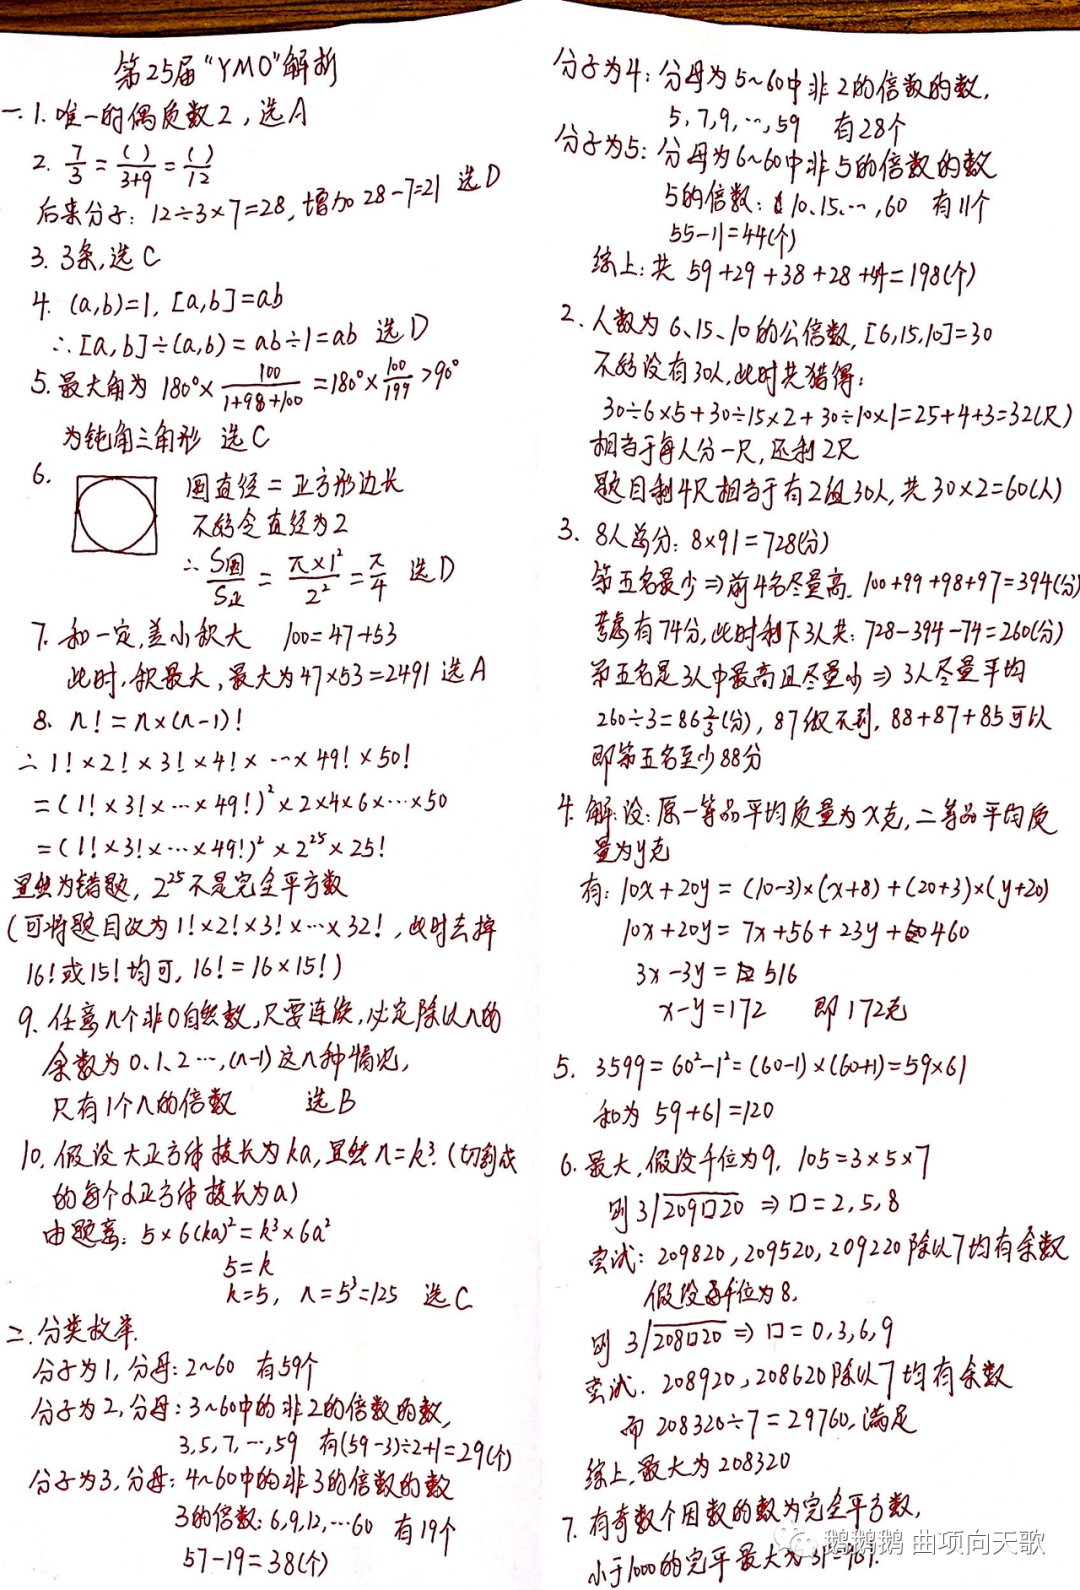 第25届“YMO”解析
一.1.唯一的偶质数2，选A
2. 7/3 = ( )/(3+9) = ( )/12
后来分子：12÷3×7=28，增加28-7=21 选D
3. 3条，选C
4. (a,b)=1, [a,b]=ab
∴[a,b]÷(a,b)=ab÷1=ab 选D
5.最大角为 180°× 100/(1+98+100) =180°× 100/199 >90°
为钝角三角形 选C
6. 圆直径=正方形边长
不妨令直径为2
∴ S圆/S正 = π×1²/2² = π/4 选D
7. 和一定,差小积大 100=47+53
此时,积最大,最大为47×53=2491 选A
8. n!=n×(n-1)!
∴1!×2!×3!×4!×…×49!×50!
=(1!×3!×…×49!)²×2×4×6×…×50
=(1!×3!×…×49!)²×2²⁵×25!
显然为错题，2²⁵不是完全平方数
(可将题目改为1!×2!×3!×…×32!，此时去掉
16!或15!均可，16!=16×15!)
9. 任意n个非0自然数,只要连续,必定除以n的
余数为0、1、2…,(n-1)这n种情况,
只有1个n的倍数 选B
10.假设大正方体棱长为ka,显然n=k³.(切割成
的每个小正方体棱长为a)
由题意：5×6(ka)²=k³×6a²
5=k
k=5, n=5³=125 选C
二.分类枚举.
分子为1,分母：2~60 有59个
分子为2,分母：3~60中的非2的倍数的数,
3,5,7,…,59 有(59-3)÷2+1=29(个)
分子为3,分母：4~60中的非3的倍数的数
3的倍数：6,9,12,…60 有19个
57-19=38(个)
分子为4：分母为5~60中非2的倍数的数,
5,7,9,…,59 有28个
分子为5：分母为6~60中非5的倍数的数
5的倍数：10、15、…,60 有11个
55-11=44(个)
综上：共 59+29+38+28+44=198(个)
2.人数为6、15、10的公倍数,[6,15,10]=30
不妨设有30人,此时共猎得：
30÷6×5+30÷15×2+30÷10×1=25+4+3=32(只)
相当于每人分一只,还剩2只
题目剩4只相当于有2组30人,共30×2=60(人)
3. 8人总分：8×91=728(分)
第五名最少⇒前4名尽量高. 100+99+98+97=394(分)
考虑有74分,此时剩下3人共：728-394-74=260(分)
第五名是3人中最高且尽量小⇒3人尽量平均
260÷3=86⅔(分)，87做不到，88+87+85可以
即第五名至少88分
4.解:设：原一等品平均质量为x克,二等品平均质
量为y克
有：10x+20y=(10-3)×(x+8)+(20+3)×(y+20)
10x+20y=7x+56+23y+460
3x-3y=516
x-y=172 即172克
5. 3599=60²-1²=(60-1)×(60+1)=59×61
和为 59+61=120
6.最大,假设千位为9. 105=3×5×7
则3|209□20⇒□=2,5,8
尝试：209820,209520,209220除以7均有余数
假设千位为8.
则3|208□20⇒□=0,3,6,9
尝试.208920,208620除以7均有余数
而208320÷7=29760,满足
综上,最大为208320
7.有奇数个因数的数为完全平方数,
小于1000的完平最大为31²=961.
鹅鹅鹅 曲项向天歌